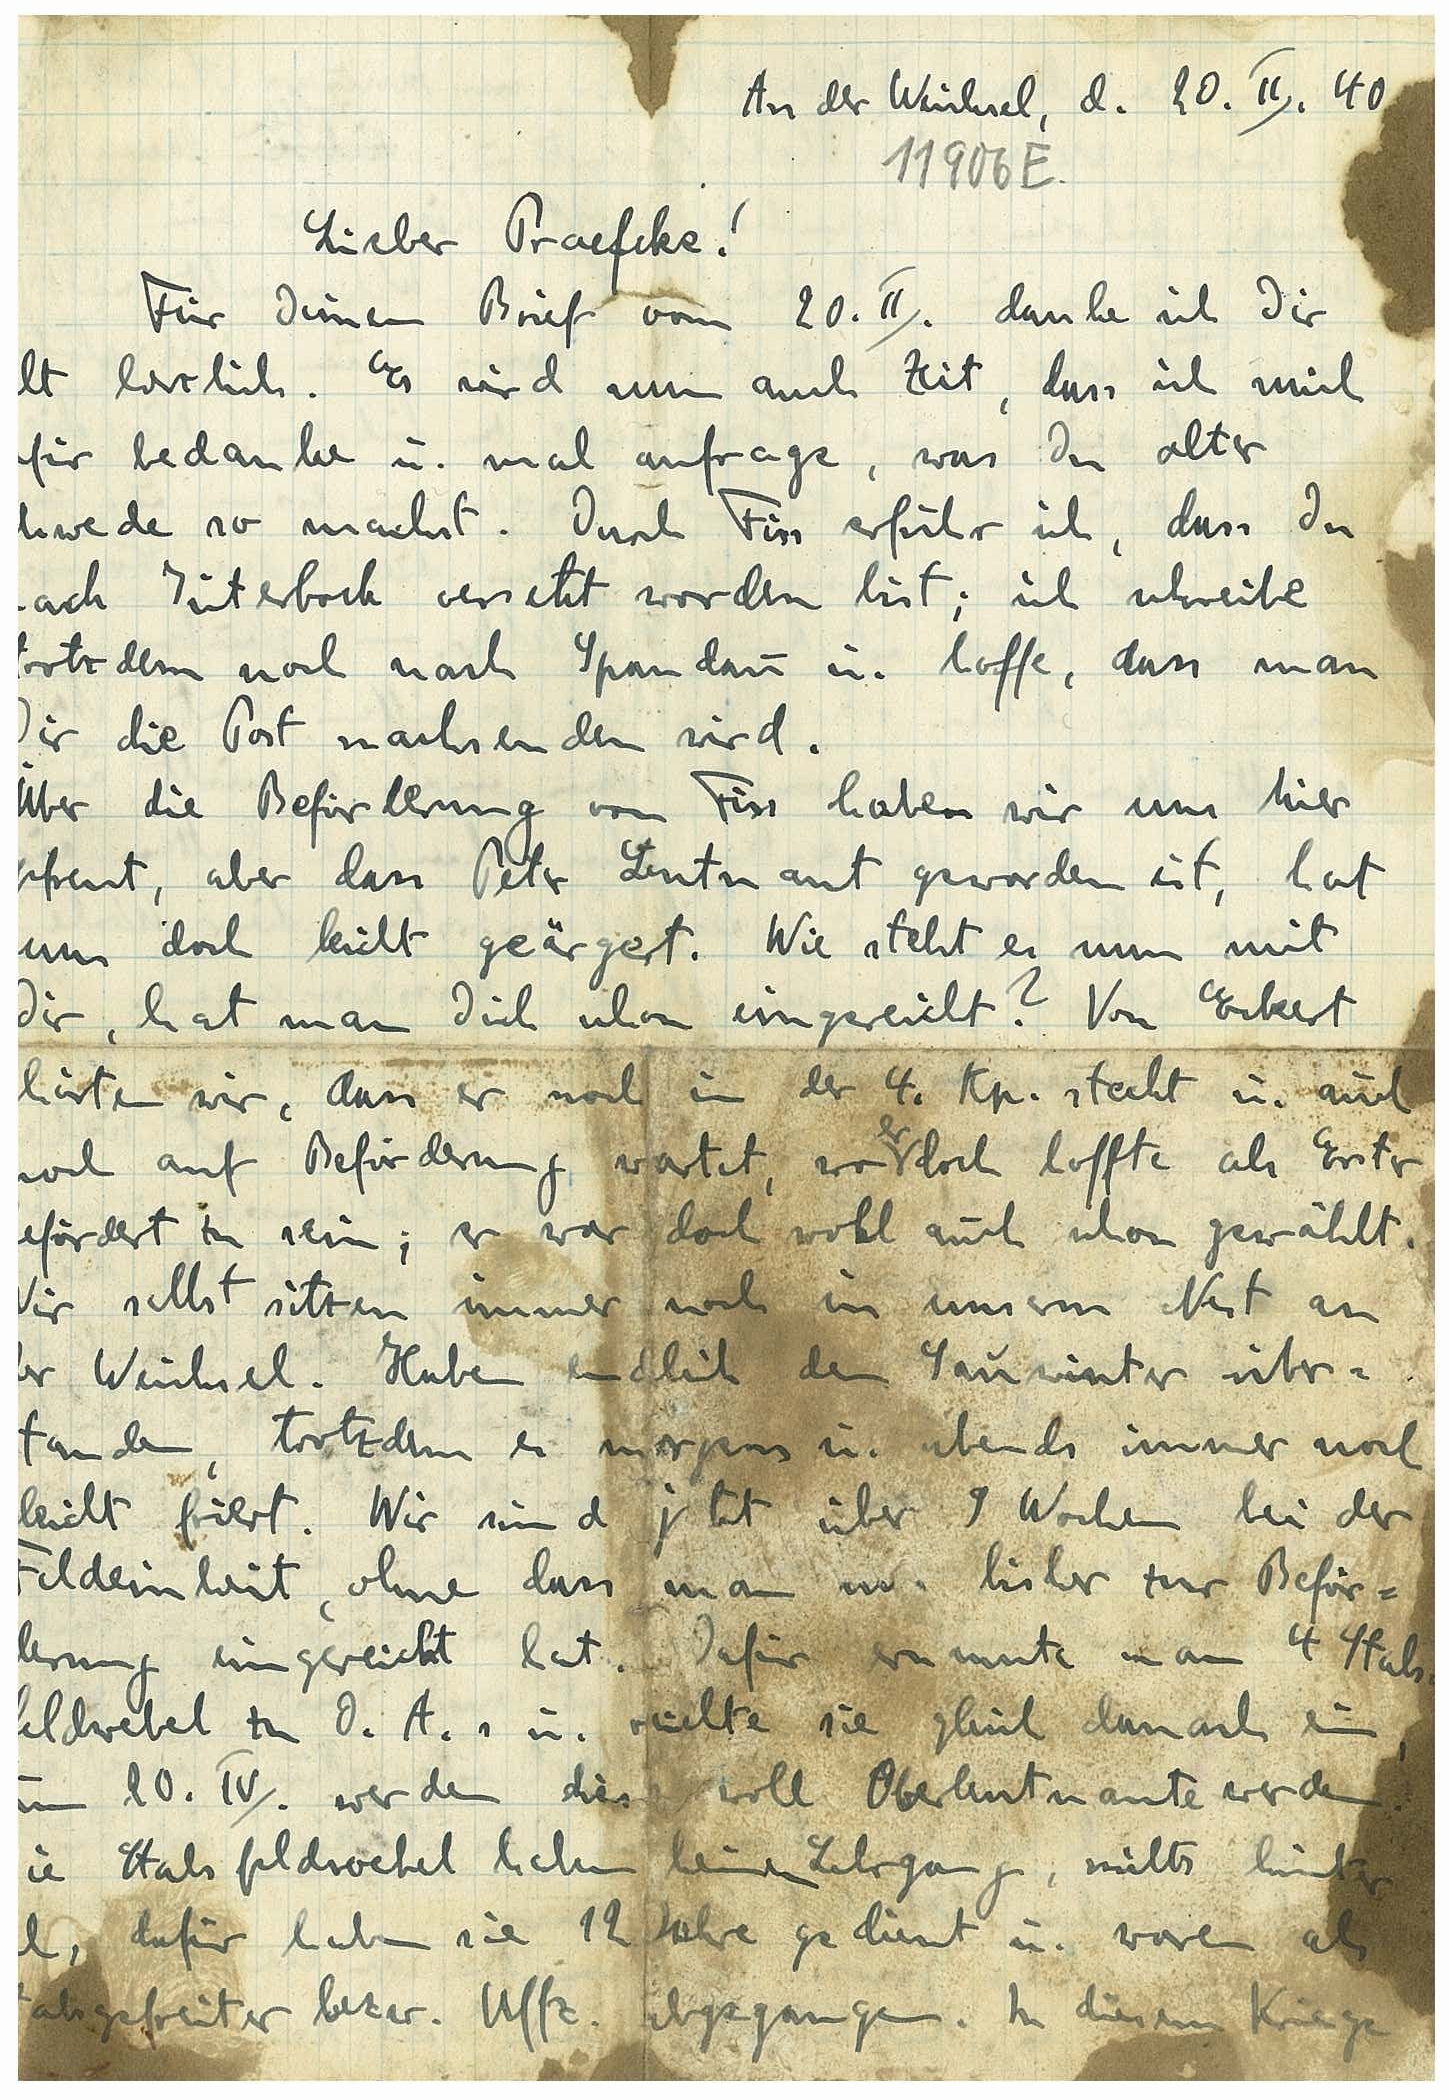 An der Weichsel, d. 20. II. 40
11906E.
Lieber Praefcke!
Für Deinen Brief vom 20. II. danke ich Dir
lt herzlich. Es wird nun auch Zeit, dass ich mich
für bedanke u. mal anfrage, was Du alter
hwede so machst. Durch Fiss erfuhr ich, dass Du
ach Jüterbock versetzt worden bist; ich schreibe
trotzdem noch nach Spandau u. hoffe, dass man
Dir die Post nachsenden wird.
Über die Beförderung von Fiss haben wir uns hier
efreut, aber dass Peter Leutnant geworden ist, hat
uns doch leicht geärgert. Wie steht es nun mit
Dir, hat man Dich schon eingereicht? Von Eckert
hörten wir, dass er noch in der 4. Kp. steckt u. auch
noch auf Beförderung wartet, wo er doch hoffte als Erster
efördert zu sein; er war doch wohl auch schon gewählt.
Wir selbst sitzen immer noch in unserm Nest an
er Weichsel. Haben endlich den Sauwinter über=
tanden, trotzdem es morgens u. abends immer noch
leicht friert. Wir sind jetzt über 9 Wochen bei der
Feldeinheit, ohne dass man uns bisher zur Beför=
derung eingereicht hat. Dafür ernannte man 4 Stabs-
feldwebel zu O. A. s u. reichte sie gleich danach ein,
um 20. IV. werden diese wohl Oberleutnante werden.
ie Stabsfeldwebel haben keinen Lehrgang, nichts hinter
h, dafür haben sie 12 Jahre gedient u. waren als
tabsgefreiter bezw. Uffz. abgegangen. In diesem Kriege